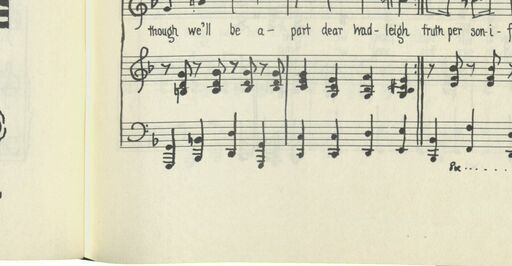 though we'll be a- part dear Wad-leigh truth per son-i-f